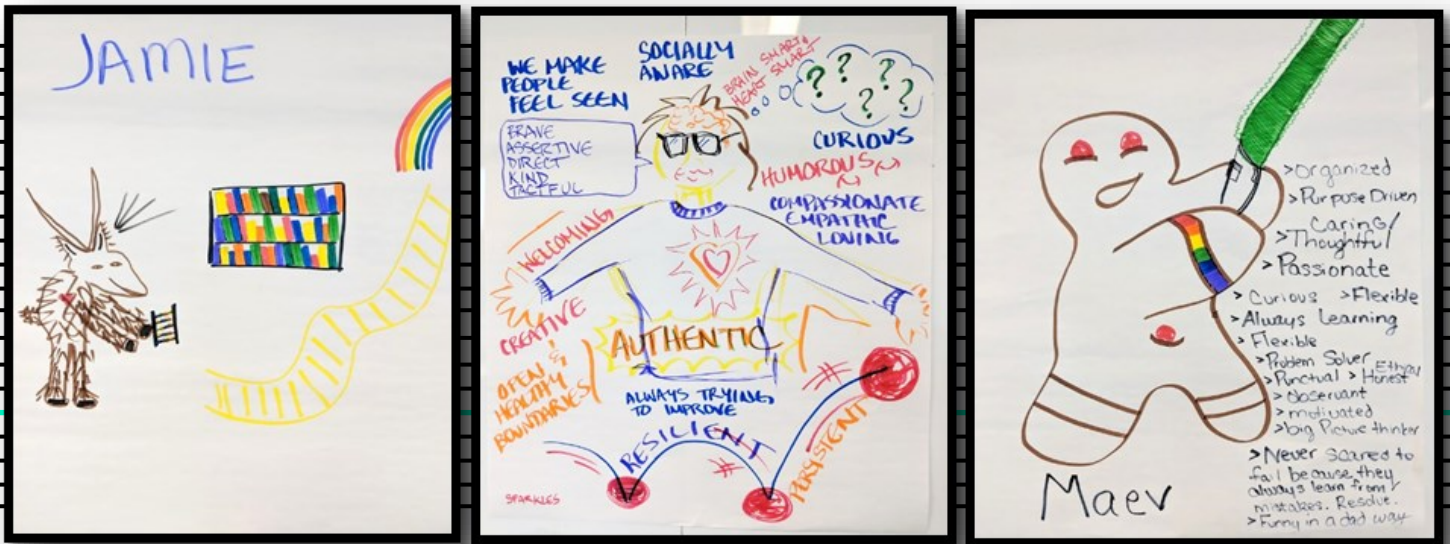 JAMIE
WE MAKE
PEOPLE
FEEL SEEN
SOCIALLY
AWARE
BRAIN SMART &
HEART SMART
? ? ? ? ?
BRAVE
ASSERTIVE
DIRECT
KIND
TACTFUL
CURIOUS
HUMOROUS
COMPASSIONATE
EMPATHIC
LOVING
WELCOMING
CREATIVE
&
OPEN
HEALTHY
BOUNDARIES
AUTHENTIC
ALWAYS TRYING
TO IMPROVE
RESILIENT
PERSISTENT
SPARKLES
>Organized
>Purpose Driven
Caring/
>Thoughtful
>Passionate
>Curious >Flexible
>Always Learning
>Flexible
>Problem Solver Ethical
>Punctual >Honest
>observant
>motivated
>big Picture thinker
>Never scared to
fail because they
always learn from
mistakes. Resolve.
>Funny in a dad way
Maev